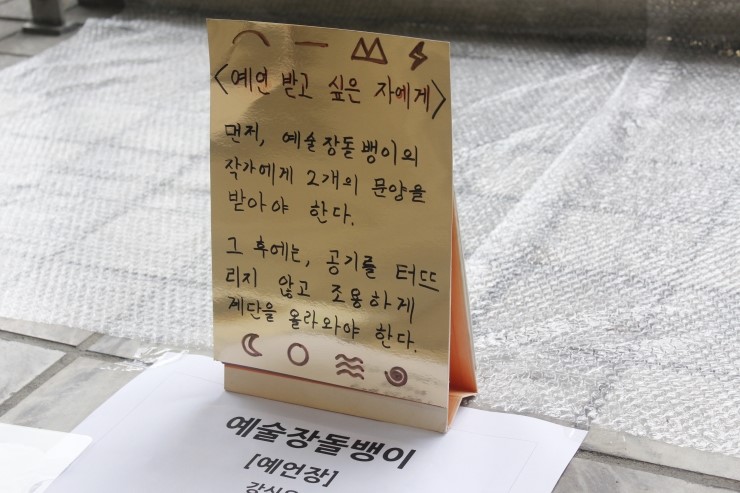 <예언 받고 싶은 자에게>
먼저, 예술장돌뱅이의
작가에게 2개의 문양을
받아야 한다.
그 후에는, 공기를 터뜨
리지 않고 조용하게
계단을 올라와야 한다.
예술장돌뱅이
[예언장]